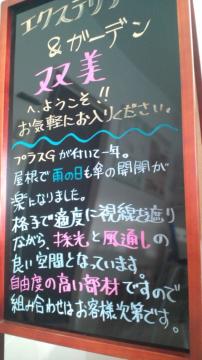 エクステリア
&ガーデン
双美
へ、ようこそ!!
お気軽にお入りください。
プラスGが付いて一年。
屋根で雨の日も傘の開閉が
楽になりました。
格子で適度に視線を遮り
ながら、採光と風通しの
良い空間となっています。
自由度の高い部材ですので
組み合わせはお客様次第です。